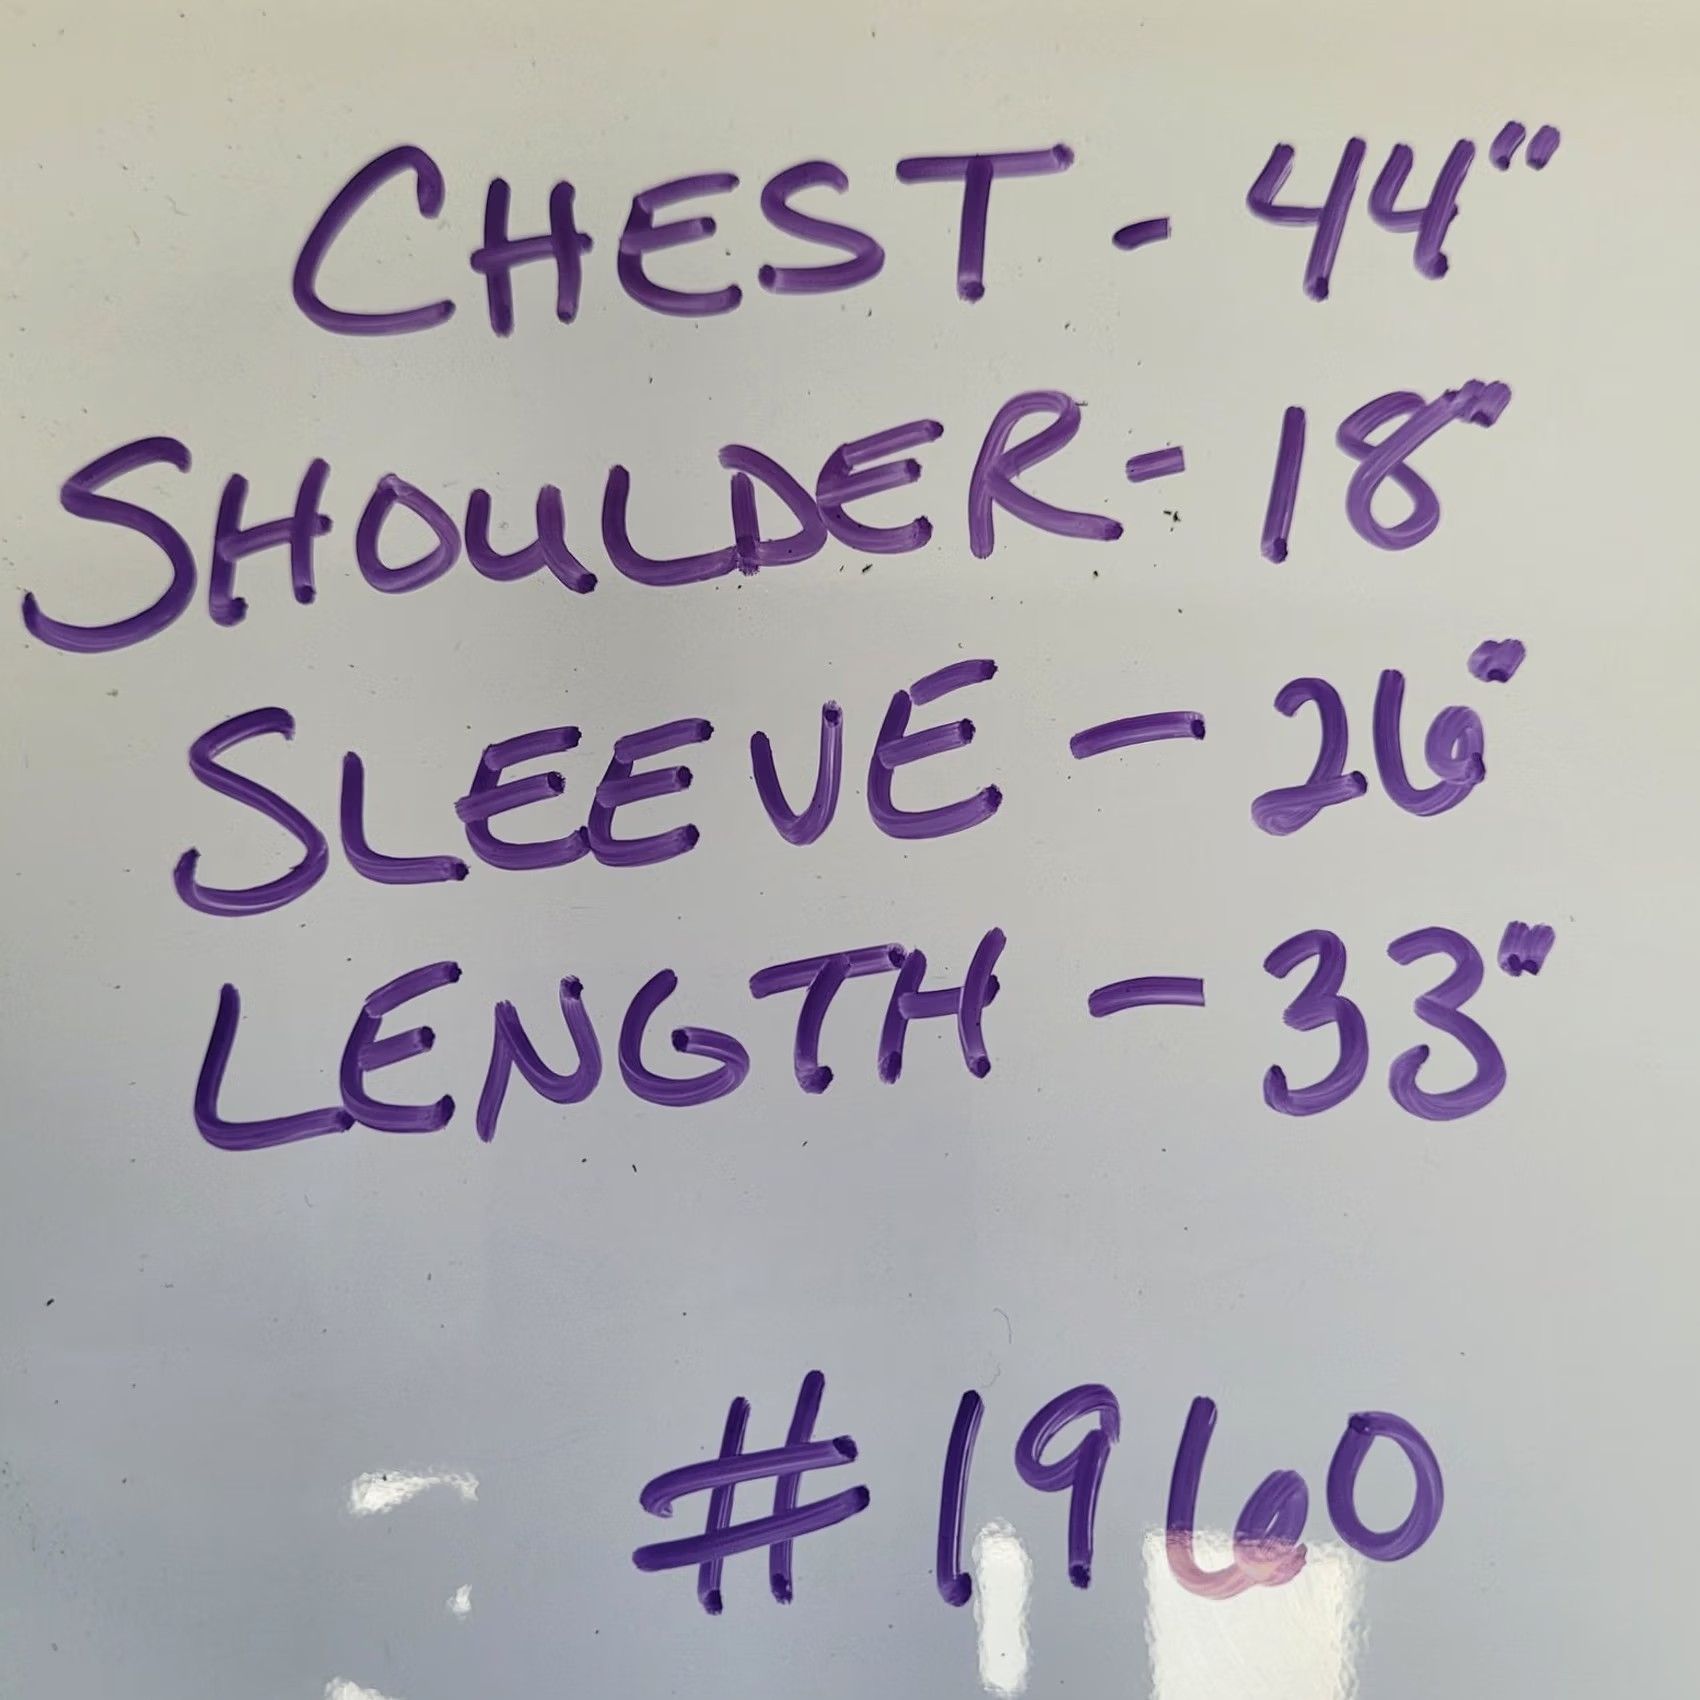 CHEST - 44"
SHOULDER - 18"
SLEEVE - 26"
LENGTH - 33"
#1960